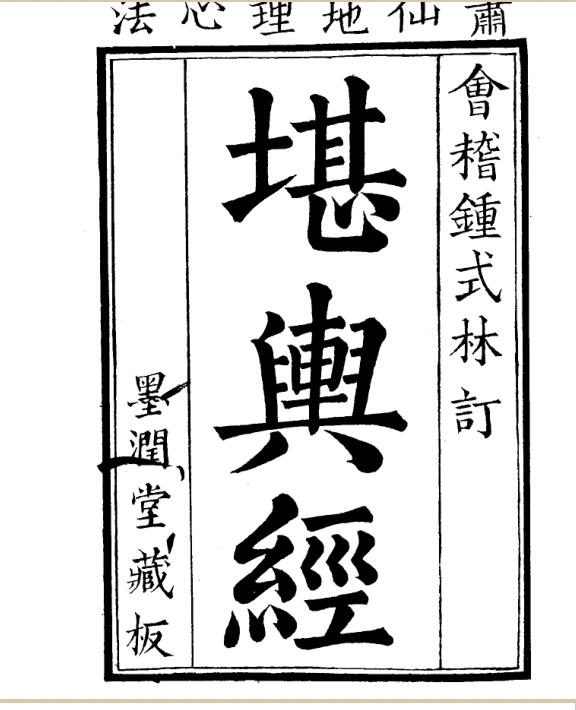 蕭仙地理心法
會稽鍾式林訂
堪輿經
墨潤堂藏板